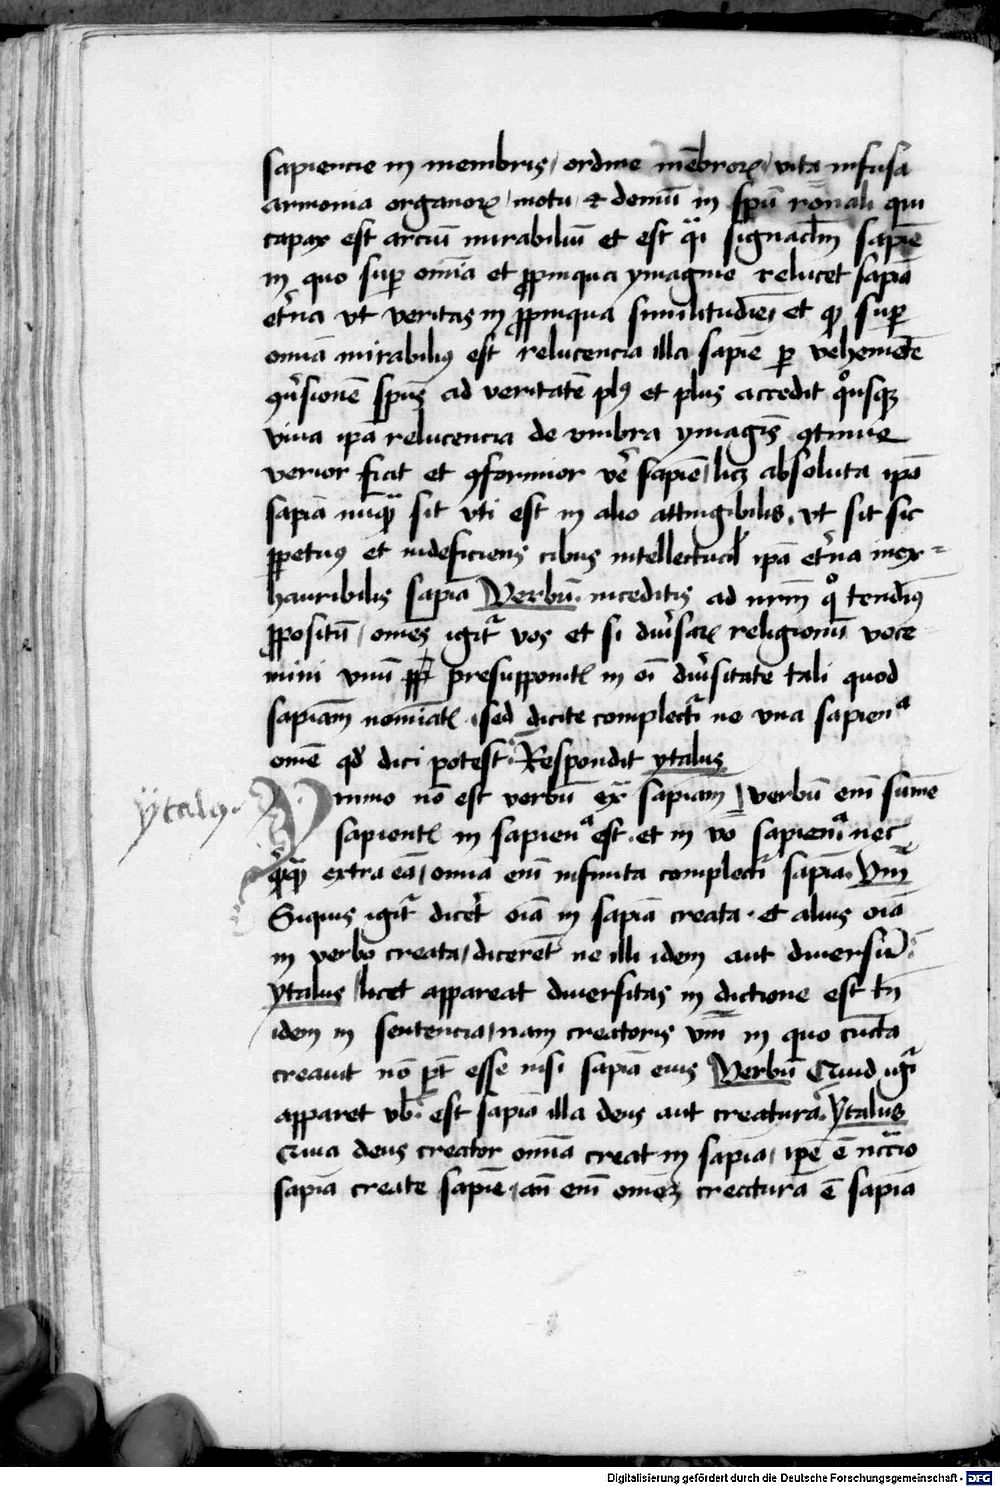 sapiencie in membris / ordine mēbroꝝ / vita infusa
armonia organoꝝ / motu / et demū in spū rōnali qui
capax est arciū mirabiliū et est q̈i signaclm̄ sapiē
in quo sup̄ om̄ia et ꝓpinqua ymagine relucet sapiā
et̄na vt veritas in ꝓpinqua similitudīe / et qꝫ sup̄
omīa mirabiliꝰ est relucencia illa sapiē ꝑ vehemētē
ꝯv̄sionē sp̄us ad veritatē plꝰ et plus accedit quousqꝫ
viua ip̄a relucencia de vmbra ymagīs ꝯtinue
verior fiat et ꝯformior ve᷑ sapiē / licꝫ absoluta ip̄a
sapiā nūq̄ sit vti est in alio attingibilis . vt sit sic
ꝑpetuꝰ et indeficiens cibus intellectual̄ ip̄a et̄na inex=
hauribilis sapiā Verbū . inceditis ad nr̄m quo tendimꝰ
ꝓpositū / om̄es igit᷑ vos et si div̄saꝝ religionū voce
mini vnū presupponitꝭ in oī div̄sitate tali quod
sapiam nom̄iatꝭ . sed dicite complectit᷑ ne vna sapienᵃ
om̄e qd̄ dici potest . Respondit ytalus
ytalꝰ .
Ymmo nō est verbū ex̄ sapiam / verbū em̄ sūme
sapientꝭ in sapienᵃ est . et in vō sapienᵃ nec
q̄cq̄ extra eā / omīa em̄ infinita complectit᷑ sapiā . Vnꝰ
Siquis igit᷑ dicet̄ oīa in sapiā creata . et alius oīa
in verbo creata / dicerēt ne illi idem aut diuersū .
ytalus / licet appareat diuersitas in dictione est tn̄
idem in sentencia / nam creatoris vm̄ in quo cūcta
creauit nō pt̄ esse nisi sapiā eius Verbū Quid igit᷑
apparet vb̄ . est sapiā illa deus aut creatura . ytalus
Quia deus creator omīa creat in sapia / ip̄e ē nccārio
sapiā create sapiē . an̄ em̄ om̄eꝫ creaturā ē sapiā
Digitalisierung gefördert durch die Deutsche Forschungsgemeinschaft - DFG